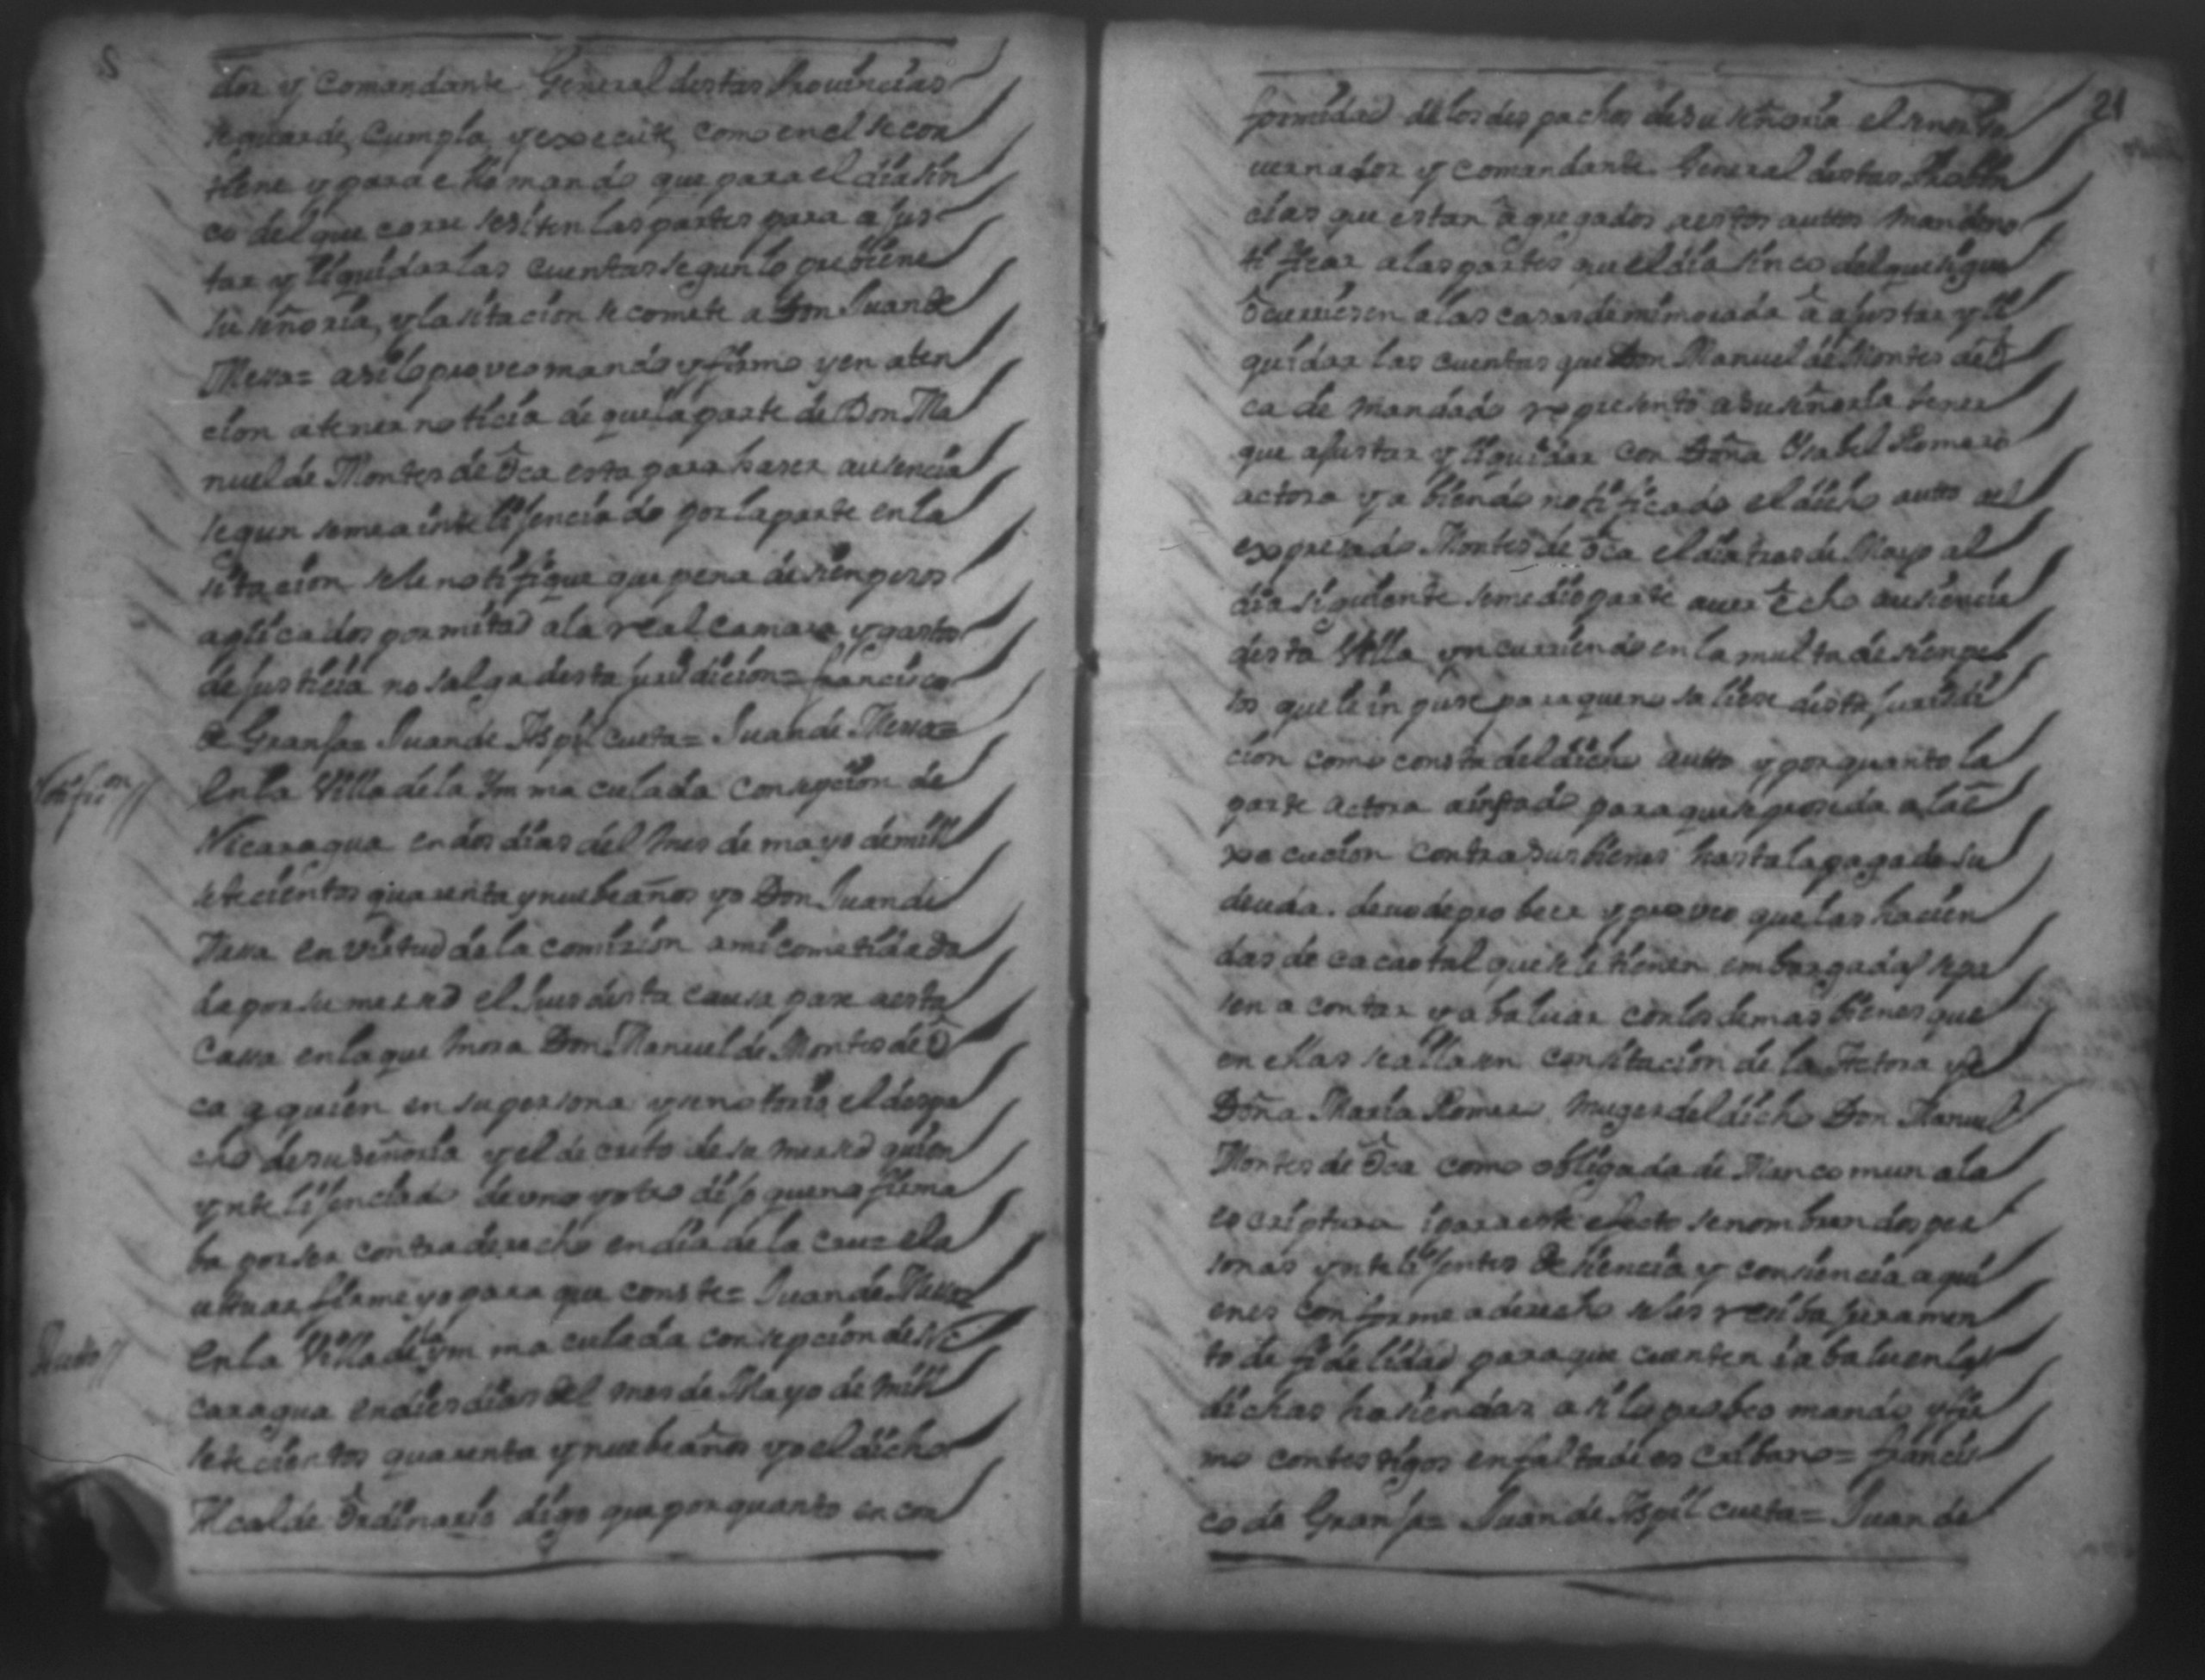 S
dor y Comandante General destas Provincias
se guarde, Cumpla, y execute, como en el se con
tiene y para ello mando que para el dia sin
co del que corre se siten las partes para ajus
tar y liquidar las cuentas segun lo previene
su señoria, y la sitacion se comete a Don Juan de
Messa= asi lo proveo mando y firmo y en aten
cion a tener noticia de que la parte de Don Ma
nuel de Montes de Oca esta para haser ausencia
segun se me a intelijenciado por la parte en la
sitacion se le notifique que pena de sien pesos
aplicados por mitad a la real Camara y gastos
de justicia no salga desta juridicion= Francisco
de Granja= Juan de Aspilcueta= Juan de Messa=
Notificon //
En la Villa de la Ymmaculada Consepcion de
Nicaragua en dos dias del mes de mayo de mill
setecientos quarenta y nuebe años yo Don Juan de
Messa en virtud de la comision a mi cometida e da
da por su mersed el Jues desta causa pase a esta
Cassa en la que mora Don Manuel de Montes de O
ca a quien en su persona y se notorio el despa
cho de su señoria y el decreto de su mersed quien
yntelijenciado de uno y otro dijo que no firma
ba por ser contra derecho en dia de la Cruz el a
utuar firme yo para que conste= Juan de Messa=
Auto //
En la Villa de la Ymmaculada consepcion de Ni
caragua en dies dias del mes de Mayo de mill
setecientos quarenta y nuebe años yo el dicho
Alcalde Ordinario digo que por quanto en con
21
formidad de los despachos de su señoria el señor Go
vernador y Comandante General destas Probin
cias que estan agregados a estos auttos mande no
tificar a las partes que el dia sinco del que sigue
ocurriesen a las casas de mi morada a ajustar y li
quidar las cuentas que Don Manuel de Montes de O
ca de mandado represento a su señoria tener
que ajustar y liquidar con Doña Ysabel Romero
actora y abiendo notificado el dicho autto al
expresado Montes de Oca el dia tres de Mayo al
dia siguiente se me dio parte aver echo ausiencia
desta Villa yncurriendo en la multa de sien pe
sos que le inpuse para que no saliese desta jurisdi
cion como consta del dicho autto y por quanto la
parte actora a instado para que se proseda a la e
xecucion contra sus bienes hasta la paga de su
deuda. devo de probeer y proveo que las hacien
das de cacaotal que se le tienen embargadas se pa
sen a contar y abaluar con los demas bienes que
en ellas se allasen con sitacion de la Actora y de
Doña Maria Romero muger del dicho Don Manuel
Montes de Oca como obligada de Mancomun a la
escriptura i para este efecto se nombran dos per
sonas yntelijentes de siencia y consiencia a qui
enes conforme a derecho se les resiba juramen
to de fidelidad para que cuenten i abaluen las
dichas hasiendas asi lo probeo mando y fir
mo con testigos en falta de escribano= Francis
co de Granja= Juan de Aspilcueta= Juan de